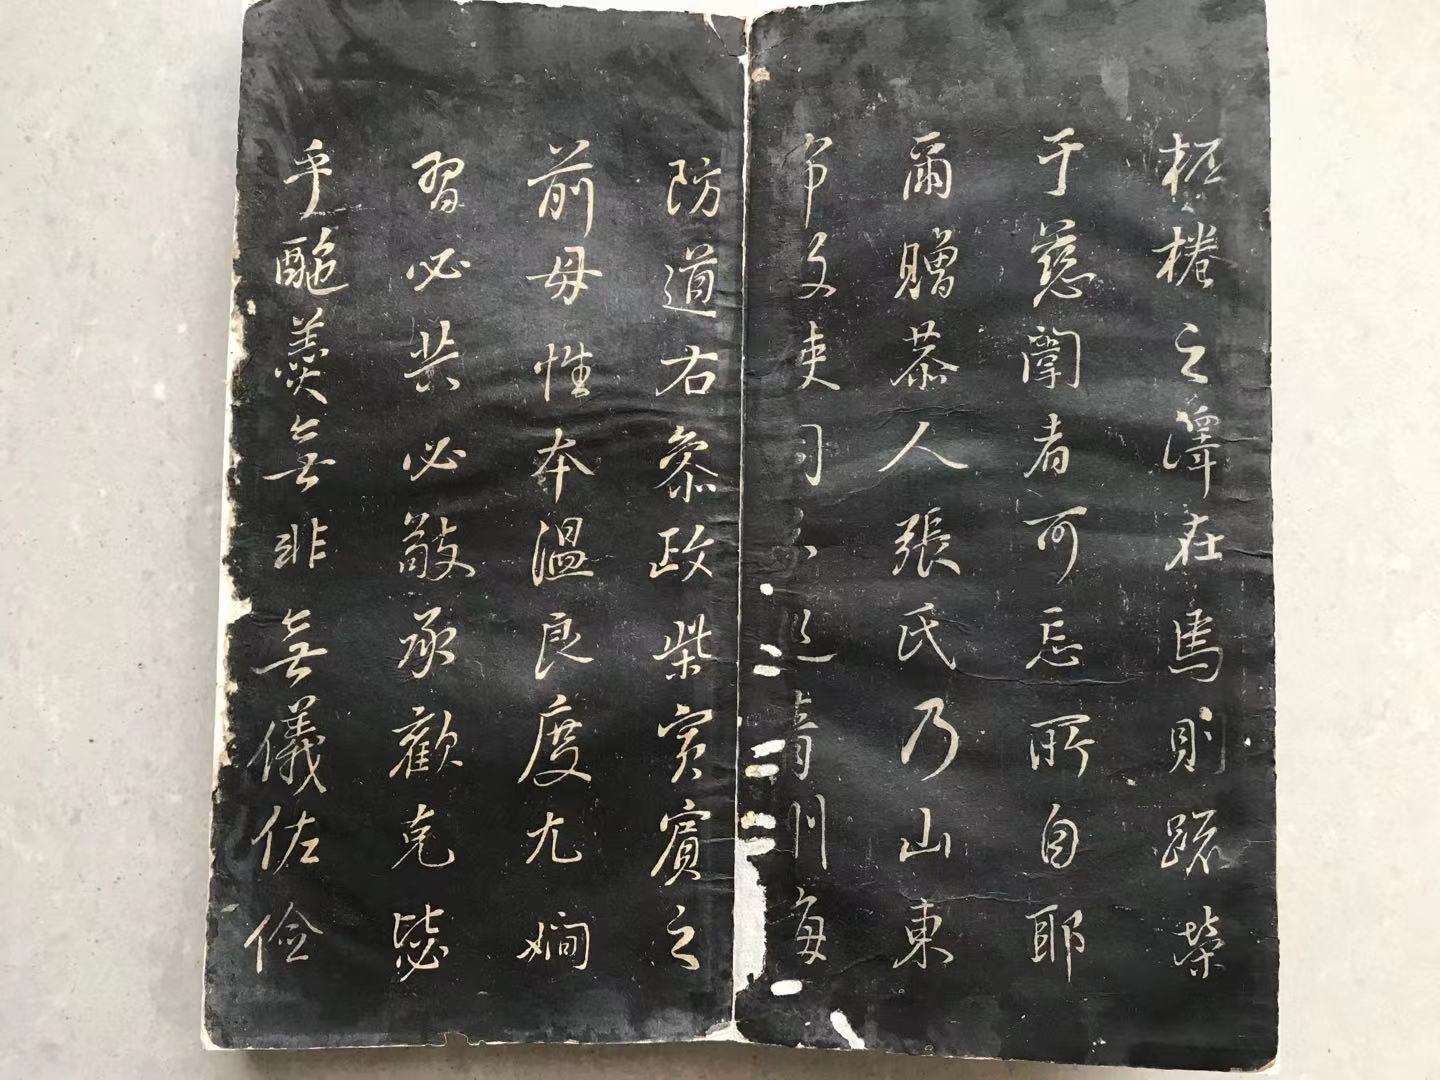 桮棬之澤在焉則疏榮
于慈闈者可忘所自耶
爾贈恭人張氏乃山東
按察使司分巡青州海
防道右叅政柴寅賓之
前母性本溫良度尤嫻
習必恭必敬承歡克毖
乎酏羹無非無儀佐儉